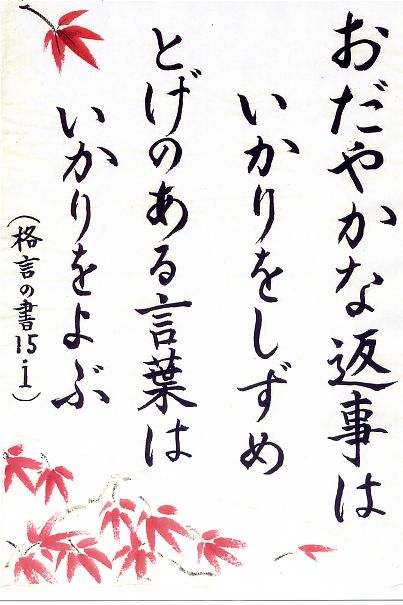 おだやかな返事は
いかりをしずめ
とげのある言葉は
いかりをよぶ
(格言の書15・1)